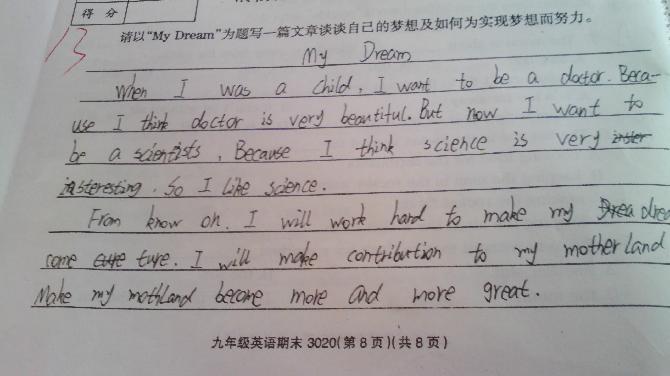 得 分
13
请以"My Dream"为题写一篇文章谈谈自己的梦想及如何为实现梦想而努力。
My Dream
When I was a child, I want to be a doctor. Beca-
use I think doctor is very beautiful. But now I want to
be a scientists, Because I think science is very
insteresting. So I like science.
From know on. I will work hard to make my drea
come ture. I will make contribution to my motherland
Make my mothland become more and more great.
九年级英语期末 3020(第8页)(共8页)